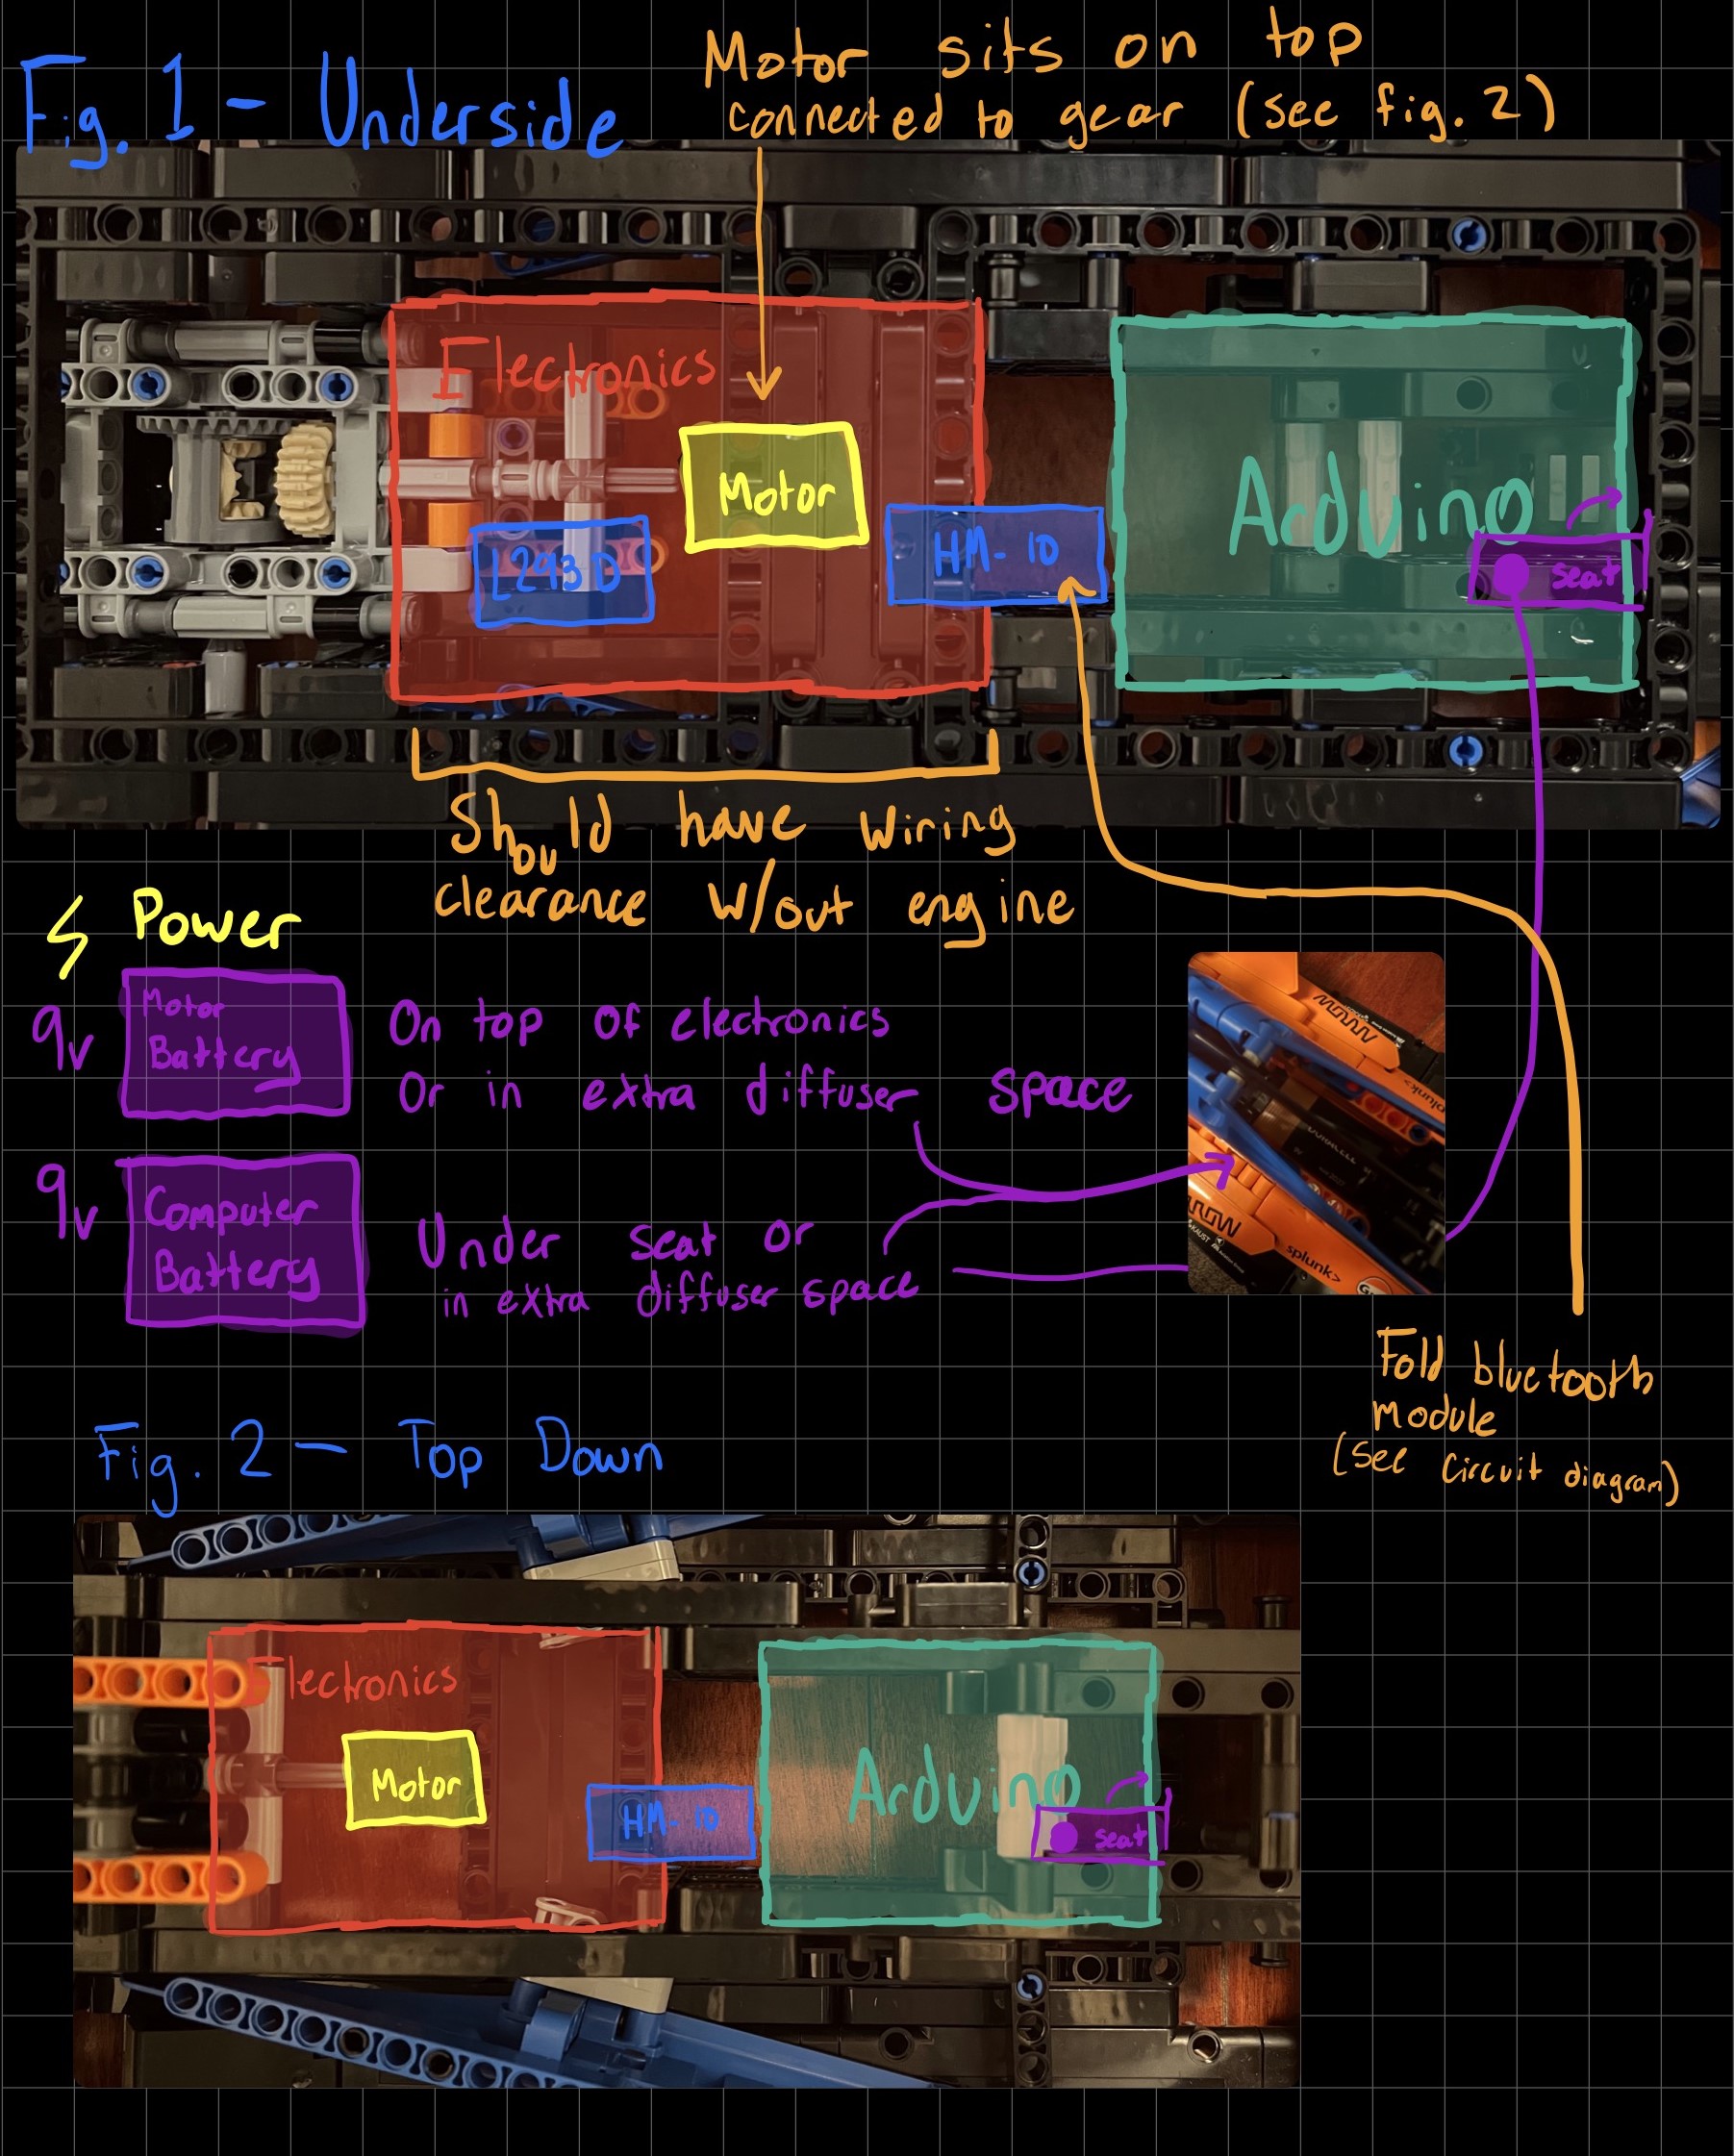 Fig. 1 - Underside
Motor sits on top
connected to gear (see fig. 2)
Electronics
Motor
L293D
HM-10
Arduino
seat
Should have wiring
clearance w/out engine
Power
9v
Motor
Battery
On top of electronics
Or in extra diffuser space
9v
Computer
Battery
Under seat or
in extra diffuser space
ARROW
splunk>
DURACELL
ARROW
KAUST
splunk>
Fold bluetooth
module
(see circuit diagram)
Fig. 2 - Top Down
Electronics
Motor
HM-10
Arduino
seat